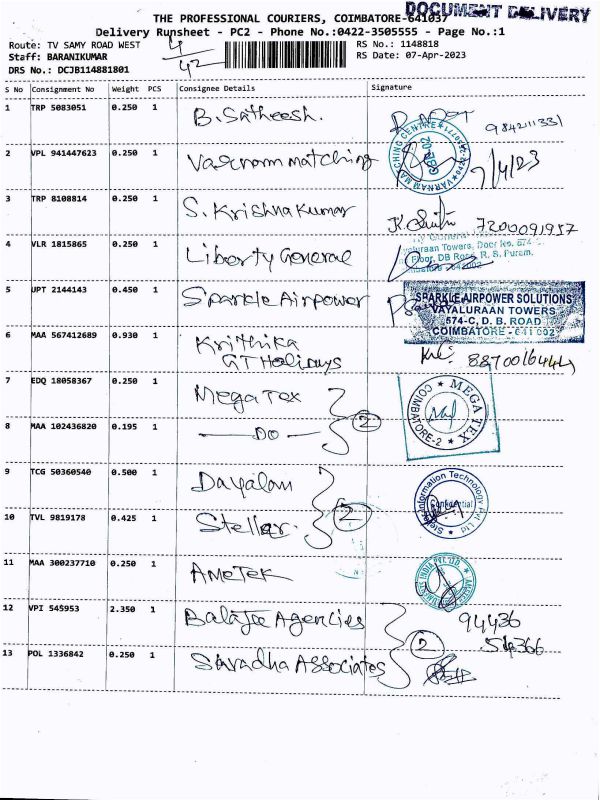 DOCUMENT DELIVERY
THE PROFESSIONAL COURIERS, COIMBATORE-641037
Delivery Runsheet - PC2 - Phone No.:0422-3505555 - Page No.:1
Route: TV SAMY ROAD WEST RS No.: 1148818
Staff: BARANIKUMAR 4/42 RS Date: 07-Apr-2023
DRS No.: DCJB114881801
S No Consignment No Weight PCS Consignee Details Signature
1 TRP 5083051 0.250 1 B. Satheesh. 9842111331
2 VPL 941447623 0.250 1 Varnam matching 7/4/23
VARNAM MATCHING CENTRE
3 TRP 8108814 0.250 1 S. Krishna Kumar 7200091957
4 VLR 1815865 0.250 1 Liberty General
Towers, Door No. 574
Floor, DB Road, R. S. Puram.
5 UPT 2144143 0.450 1 Sparkle Airpower
SPARKLE AIRPOWER SOLUTIONS
VAYALURAAN TOWERS
574-C, D. B. ROAD
COIMBATORE - 641 002
6 MAA 567412689 0.930 1 Krithika
GT Holidays
7 EDQ 18058367 0.250 1 Mega Tex
MEGATEX COIMBATORE-2
8 MAA 102436820 0.195 1 DO 2
9 TCG 50360540 0.500 1 Dayalan
Information Technology Pvt Ltd
10 TVL 9819178 0.425 1 Stellar. 2
11 MAA 300237710 0.250 1 Ametek
12 VPI 545953 2.350 1 Balajee Agencies 94436
13 POL 1336842 0.250 1 Saradha Associates 2